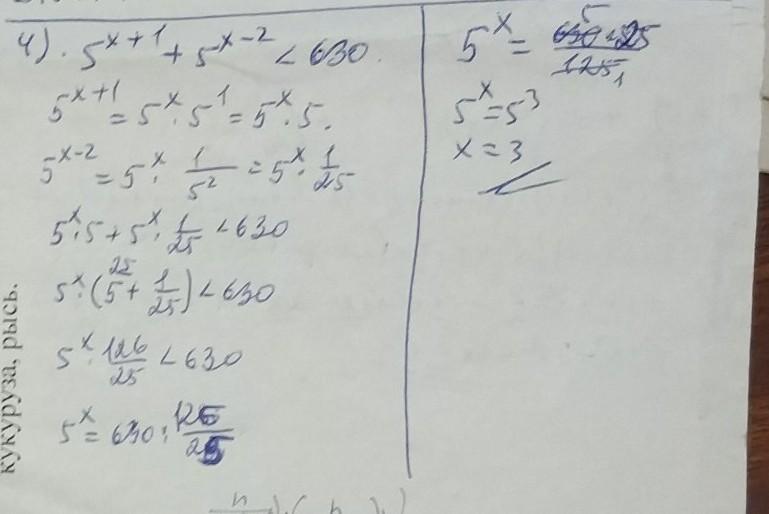 4). 5^{x+1} + 5^{x-2} < 630.
5^{x+1} = 5^x · 5^1 = 5^x · 5.
5^{x-2} = 5^x · 1/5^2 = 5^x · 1/25
5^x · 5 + 5^x · 1/25 < 630
25
5^x · (5 + 1/25) < 630
5^x · 126/25 < 630
5^x = 630 : 126/25
5
5^x = 630 · 25 / 125 1
5^x = 5^3
x = 3
кукуруза, рысь.